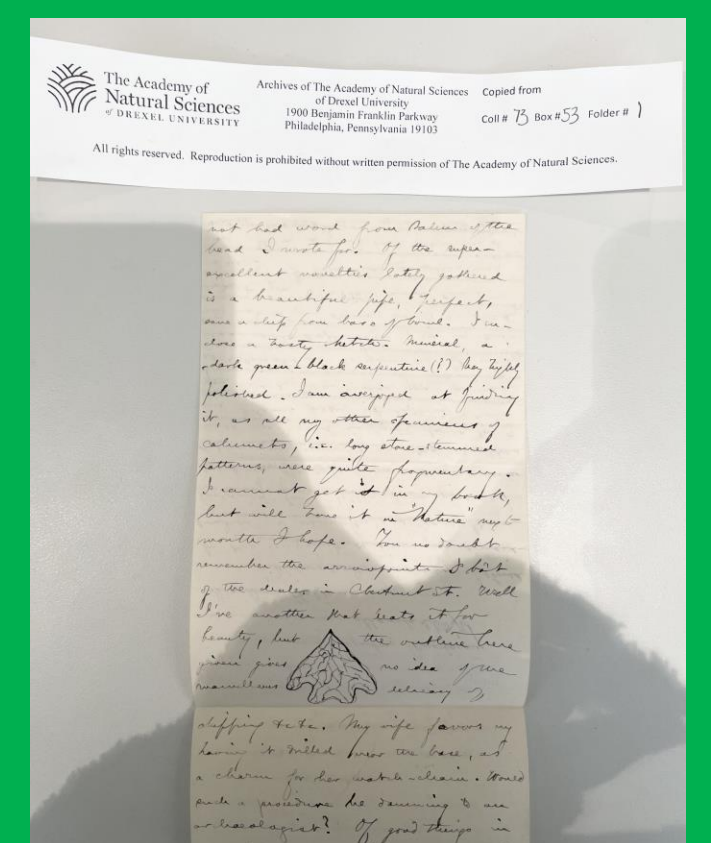 The Academy of
Natural Sciences
of DREXEL UNIVERSITY
Archives of The Academy of Natural Sciences
of Drexel University
1900 Benjamin Franklin Parkway
Philadelphia, Pennsylvania 19103
Copied from
Coll # 73 Box # 53 Folder # 1
All rights reserved. Reproduction is prohibited without written permission of The Academy of Natural Sciences.
not had word from of the
I wrote for. Of the super-
excellent novelties lately gathered
is a beautiful pipe, perfect,
save a chip from base of bowl. I en-
close a hasty sketch. Mineral, a
dark green-black serpentine (?) very highly
polished. I am overjoyed at finding
it, as all my other specimens of
calumets, i.e. long stone-stemmed
patterns, were quite fragmentary.
I cannot get it in my book,
but will have it in "Nature" next
month I hope. You no doubt
remember the arrowpoint I b'o't
of the dealer in Chestnut St. Well
I've another that beats it for
beauty, but the outline here
given gives no idea of the
marvellous delicacy of
chipping &c &c. My wife favors my
having it drilled near the base, as
a charm for her watch-chain. Would
such a procedure be damning to an
archaeologist? Of good things in